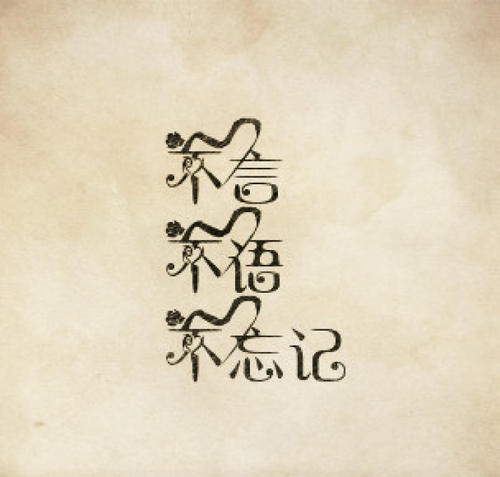 不言
不语
不忘记